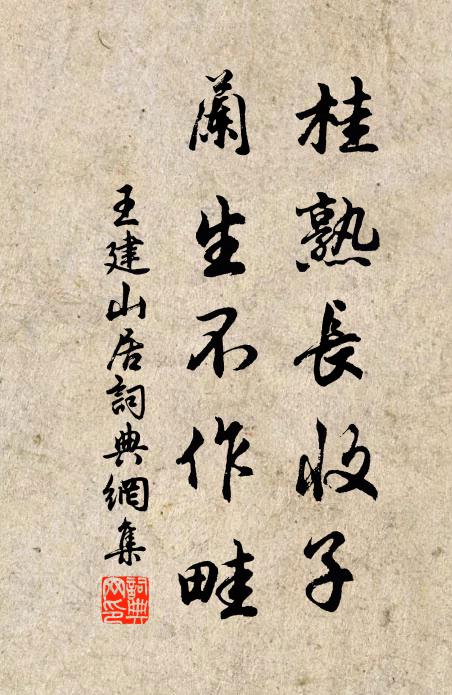 桂熟長收子
蘭生不作畦
王建山居詞典網集
詞典网印